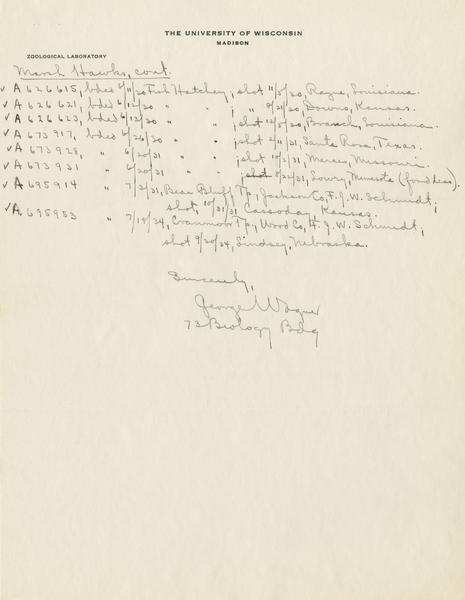 THE UNIVERSITY OF WISCONSIN
MADISON
ZOOLOGICAL LABORATORY
Marsh Hawks, cont.
✓ A 626615, bded 6/11/30 Fish Hatchery, shot 11/5/30, Rayne, Louisiana.
✓ A 626621, bded 6/12/30 " " ; " 9/21/30, Downs, Kansas.
✓ A 626623, bded 6/12/30 " " ; shot 12/5/30, Branch, Louisiana.
✓ A 673917, bded 6/26/30 " " ; shot 2/11/31, Santa Rosa, Texas.
✓ A 673928, " 6/20/31 " " ; shot 10/2/31, Mercer, Missouri.
✓ A 673931 " 6/20/31 " " ; shot 8/22/31, Lowry, Minnesota (found dead).
✓ A 695914 " 7/2/31, Bear Bluff Tp, Jackson Co, F.J.W. Schmidt;
shot, 10/31/31 Cassoday, Kansas.
✓ A 695953 " 7/19/34, Cranmoor Tp, Wood Co, F.J.W. Schmidt;
shot 9/20/34, Lindsey, Nebraska.
Sincerely,
George Wagner
73 Biology Bdg